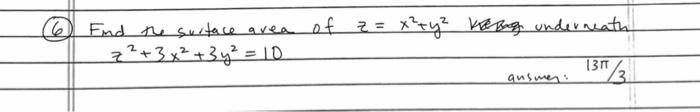 ⑥ Find the surface area of z = x²+y² underneath
z²+3x²+3y² = 10
answer: 13π/3